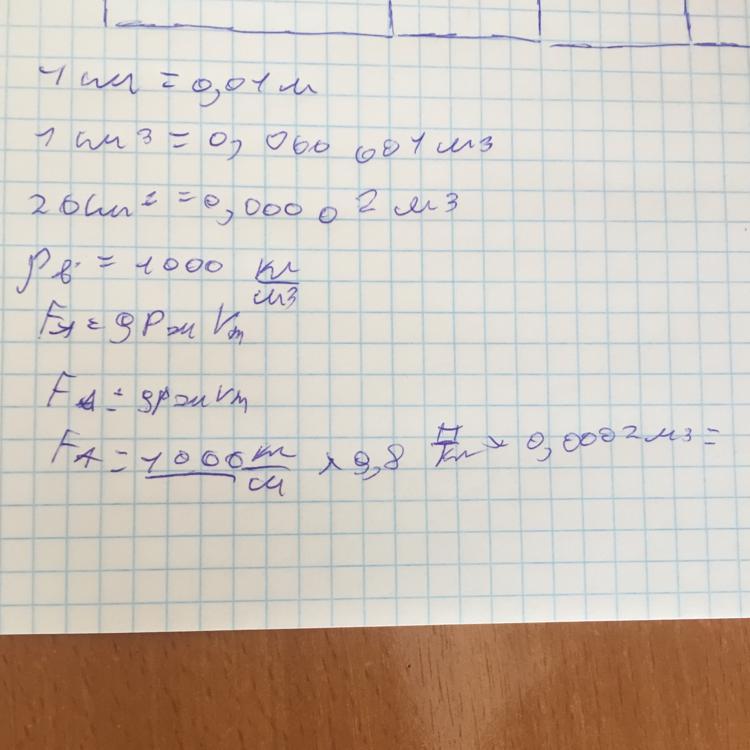 1 см = 0,01 м
1 см3 = 0, 000 001 м3
20 см³ = 0,000 0 2 м3
ρв = 1000 кг/м3
FA = gρж Vт
FA = gρж Vт
FA = 1000 кг/м × 9,8 Н/кг × 0,0002 м3 =